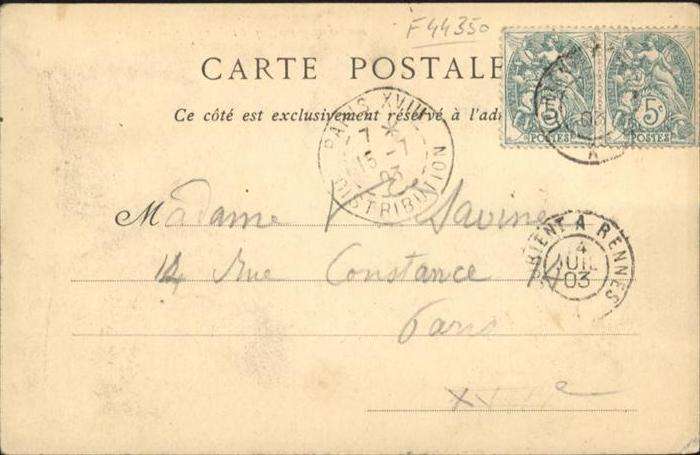 F 44350
CARTE POSTALE
Ce côté est exclusivement réservé à l'adr
PARIS XVIII
7 * 7
15
03
DISTRIBUTION
5c
POSTES POSTES
03
Madame Savine
14 Rue Constance
Paris
XVIIIe
ORIENT A RENNES
14
JUIL
03